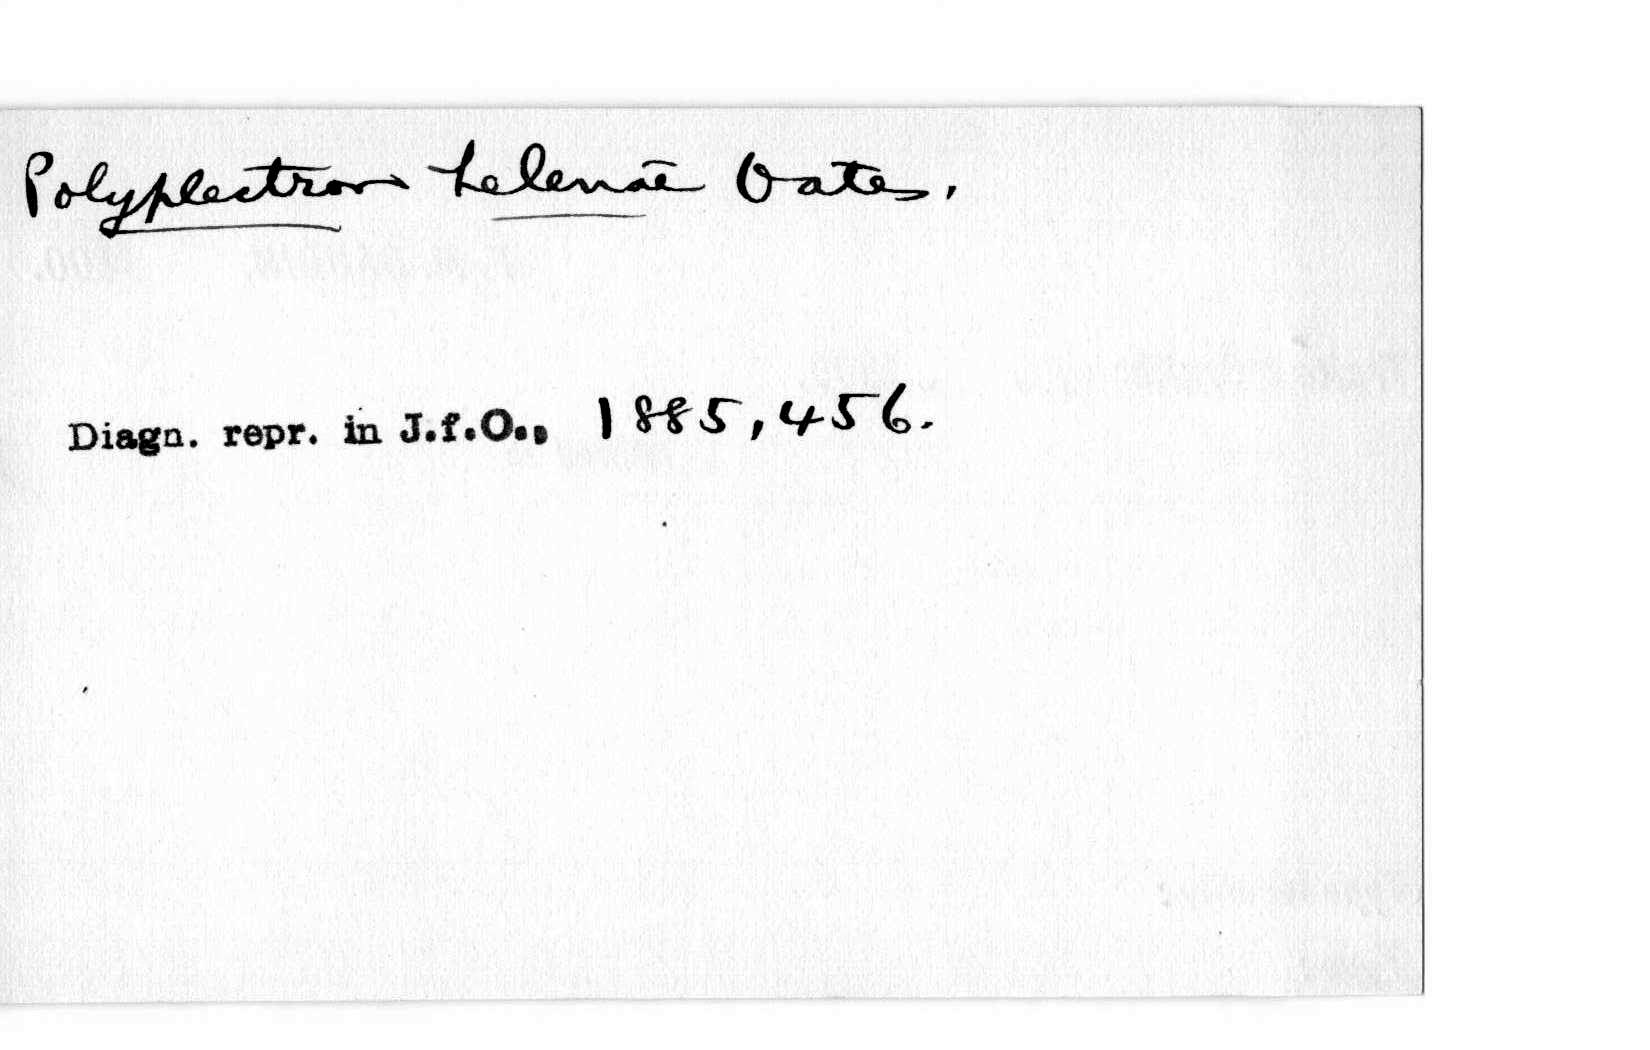 Polyplectron helenae Oates,
Diagn. repr. in J.f.O., 1885, 456.